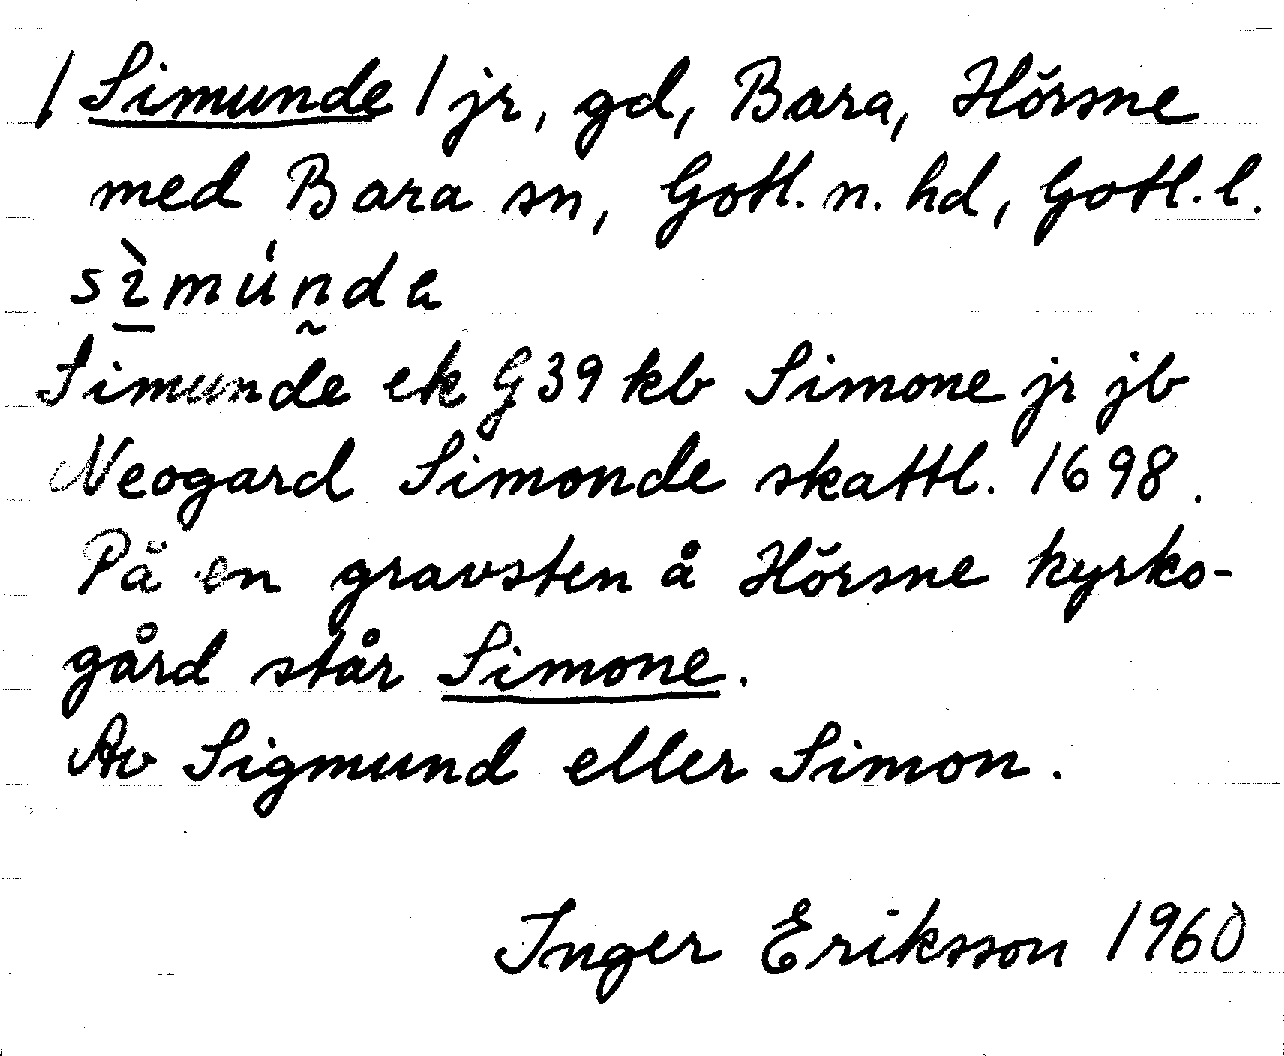 / Simunde / jr, gd, Bara, Hörsne
med Bara sn, Gotl. n. hd, Gotl. l.
sì̠mún̰da
Simunde ek G 39 kb Simone jr jb
Neogard Simonde skattl. 1698.
På en gravsten å Hörsne kyrko-
gård står Simone.
Av Sigmund eller Simon.
Inger Eriksson 1960